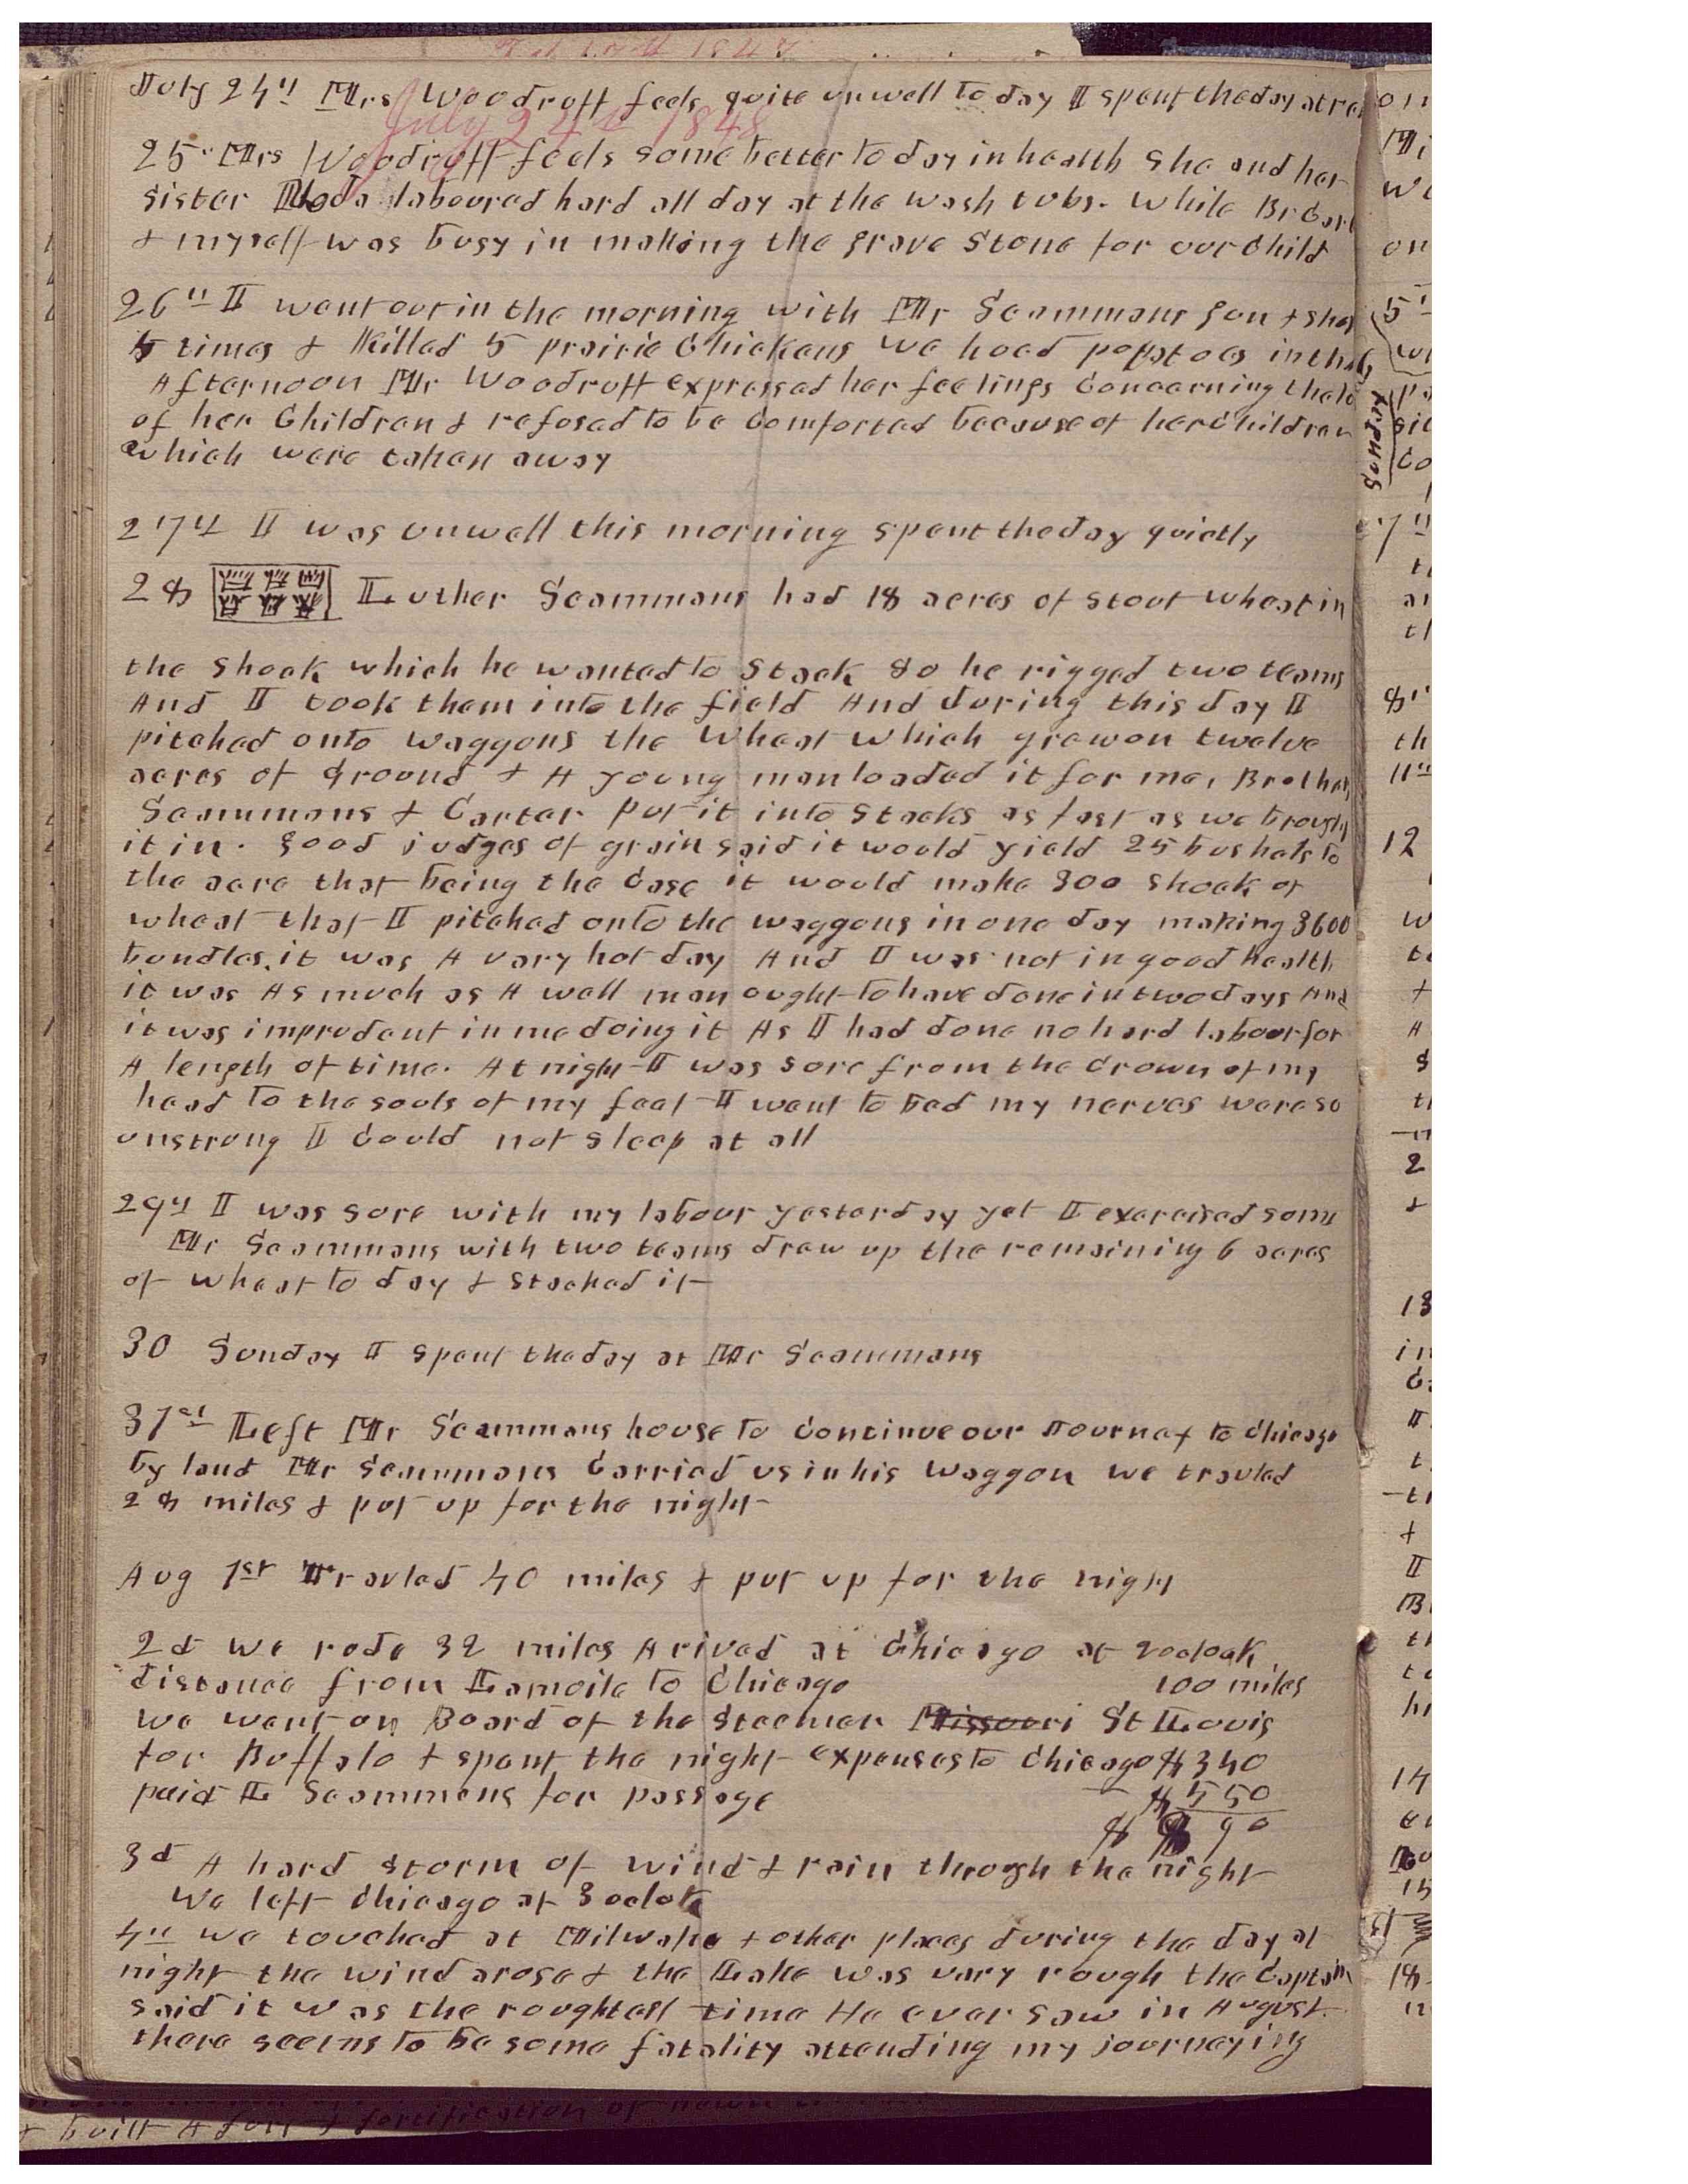 July 24th Mrs Woodruff feels quite unwell to day I spent the day at
July 24th 1848
25 Mrs Woodruff feels some better to day in health she and her
sister Rhoda laboured hard all day at the wash tubs. while Br Cart
& myself was busy in making the grave Stone for our Child
26th I went out in the morning with Mr Scammans gun & shot
5 times & Killed 5 prairie Chickens we hoed potatoes in the
Afternoon Mr Woodruff expressed her feelings Concerning the lo
of her Children & refused to be Comforted because of her Children
which were taken away
27th I was unwell this morning spent the day quietly
28 Luther Scammans had 18 acres of stout wheat in
the shock which he wanted to stack so he rigged two teams
And I took them into the field And during this day I
pitched onto waggons the wheat which grew on twelve
acres of ground & A young man loaded it for me, Brother
Scammans & Carter put it into stacks as fast as we brought
it in. good judges of grain said it would yield 25 bushels to
the acre that being the Case it would make 300 shock of
wheat that I pitched onto the waggons in one day making 3600
bundles. it was A vary hot day And I was not in good health
it was As much as A well man ought to have done in two days And
it was imprudent in me doing it As I had done no hard labour for
A length of time. At night I was sore from the Crown of my
head to the souls of my feet I went to bed my nerves were so
unstrung I Could not sleep at all
29th I was sore with my labour yesterday yet I exercised some
Mr Scammans with two teams drew up the remaining 6 acres
of wheat to day & stacked it
30 Sunday I spent the day at Mr Scammans
31st Left Mr Scammans house to Continue our Journey to Chicago
by land Mr Scammans Carried us in his waggon we travled
28 miles & put up for the night
Aug 1st Travled 40 miles & put up for the night
2d we rode 32 miles Arived at Chicago at 2 oclok
distance from Lamoile to Chicago 100 miles
we went on Board of the Steemer Missouri St Louis
for Buffalo & spent the night expenses to Chicago $340
paid L Scammans for passage $550
$ 8 90
3d A hard storm of wind & rain through the night
We left Chicago at 3 oclok
4th we touched at Milwake & other places during the day at
night the wind arose & the Lake was vary rough the Captain
said it was the roughtest time He ever saw in August.
there seems to be some fatality attending my journeying
Sunday